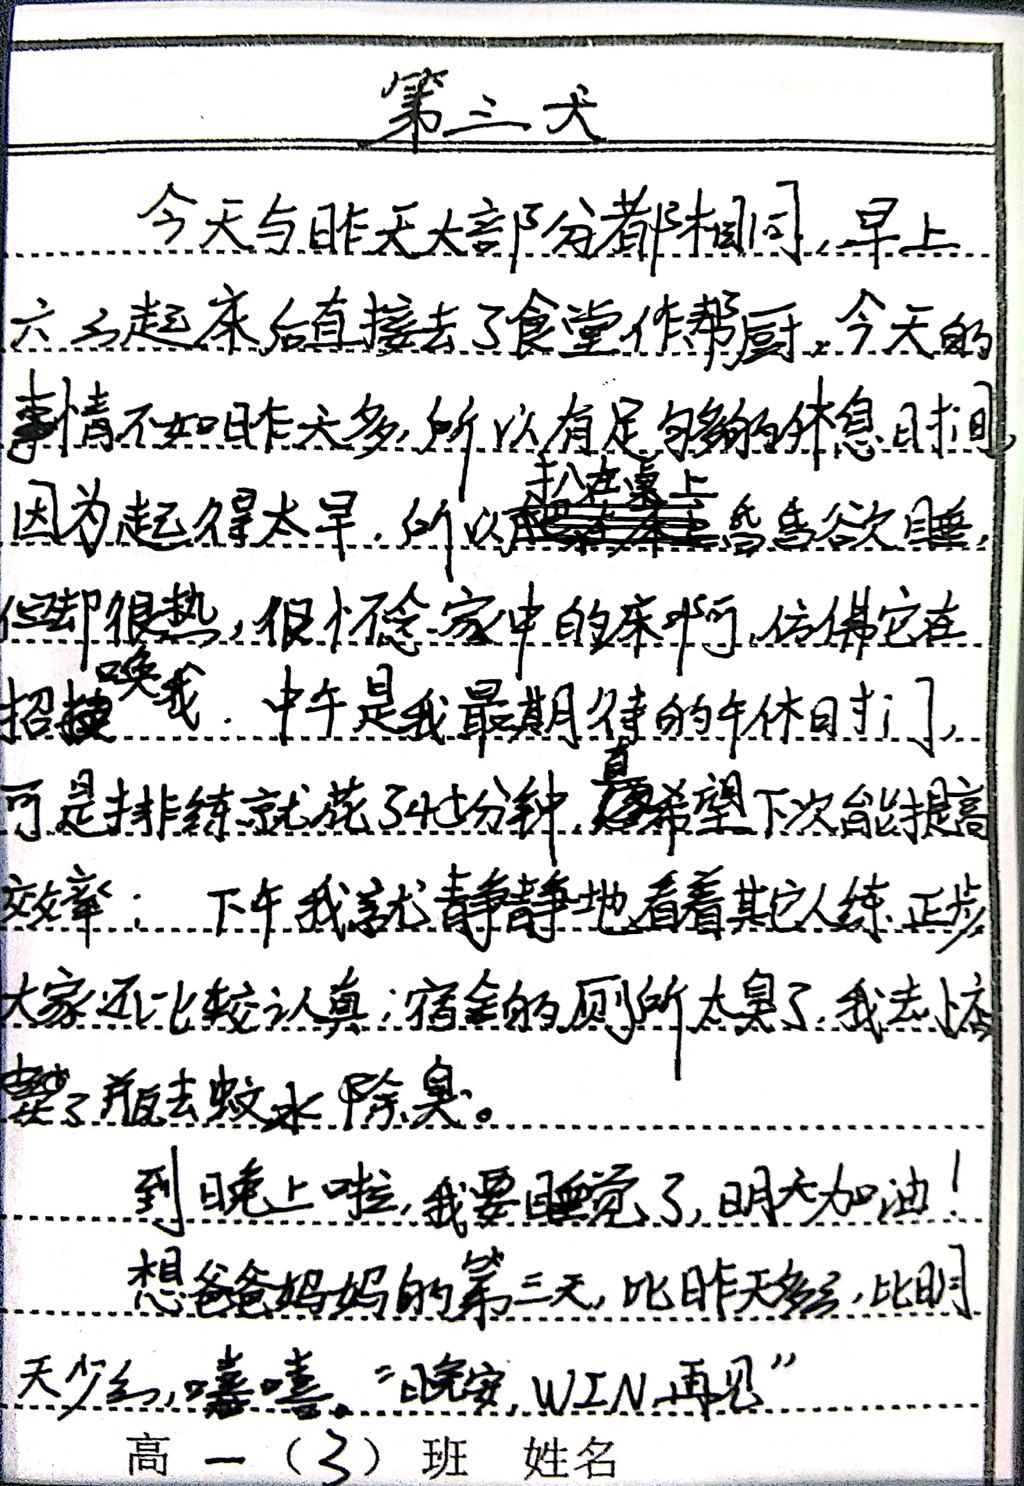 第三天
今天与昨天大部分都相同,早上
六点起床后直接去了食堂作帮厨,今天的
事情不如昨天多,所以有足够多的休息时间,
因为起得太早,所以趴在桌上昏昏欲睡,
但却很热,很怀念家中的床啊,仿佛它在
招唤我.中午是我最期待的午休时间,
可是排练就花了45分钟,真希望下次能提高
效率;下午我就静静地看着其它人练正步,
大家还比较认真;宿舍的厕所太臭了,我去小店
买了瓶去蚊水除臭。
到晚上啦,我要睡觉了,明天加油!
想爸爸妈妈的第三天,比昨天多点,比明
天少点,嘻嘻。“晚安,WIN再见”
高一(3)班 姓名